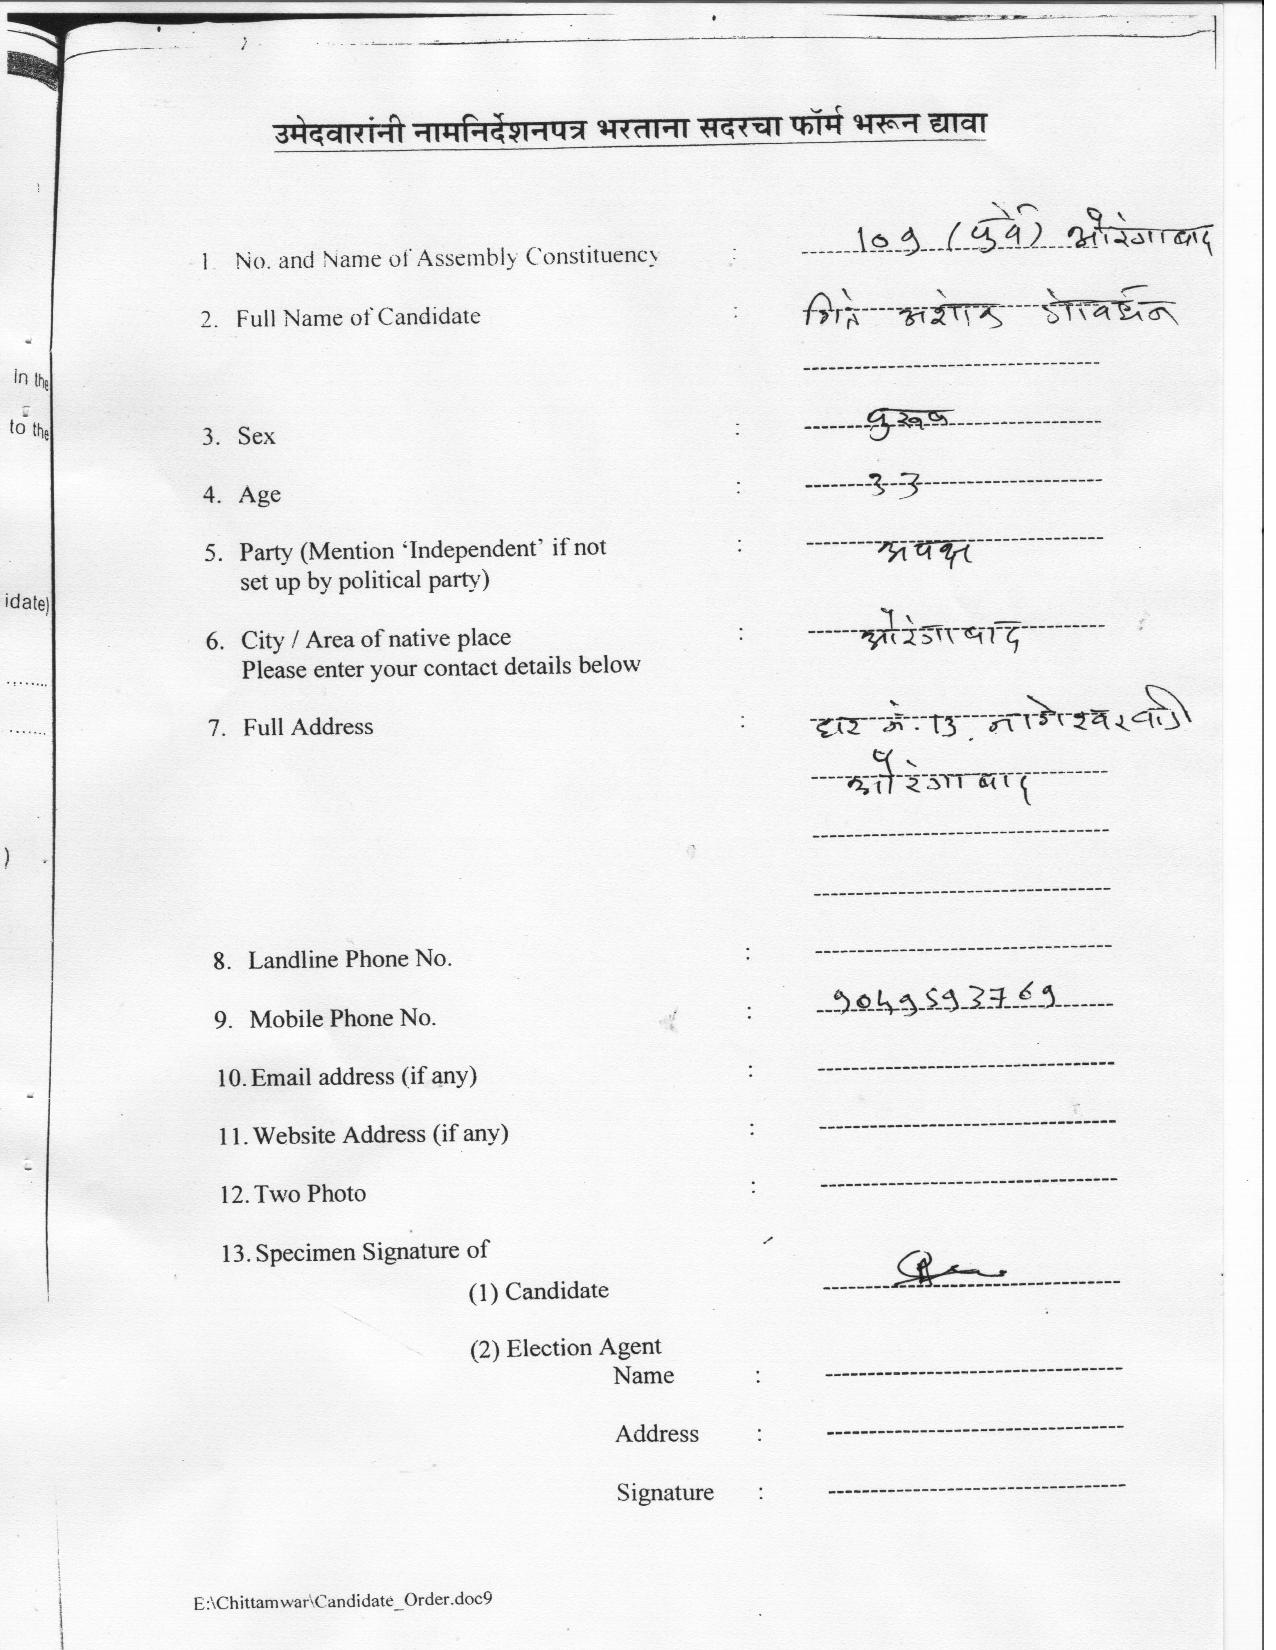 उमेदवारांनी नामनिर्देशनपत्र भरताना सदरचा फॉर्म भरून द्यावा
1 No. and Name of Assembly Constituency : 109 (पुर्व) औरंगाबाद
2. Full Name of Candidate : गिते अशोक गोवर्धन
3. Sex : पुरूष
4. Age : 33
5. Party (Mention ‘Independent’ if not : अपक्ष
set up by political party)
6. City / Area of native place : औरंगाबाद
Please enter your contact details below
7. Full Address : नागेश्वरवाडी
औरंगाबाद
8. Landline Phone No. :
9. Mobile Phone No. :
10. Email address (if any) :
11. Website Address (if any) :
12. Two Photo :
13. Specimen Signature of
(1) Candidate
(2) Election Agent
Name :
Address :
Signature :
E:\Chittamwar\Candidate_Order.doc9
in the
to the
idate)